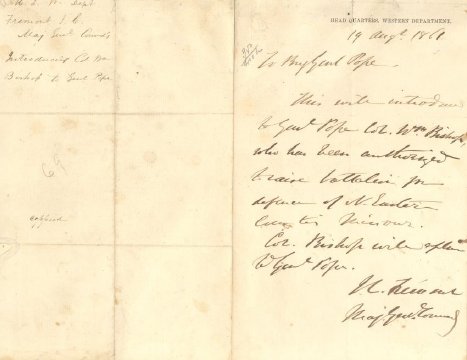 Fremont J. C.
Maj Genl Comd'g
Introducing Col Wm
Bishop to Genl Pope
copied
HEAD QUARTERS, WESTERN DEPARTMENT.
19 Augt. 1861
To Brig Genl Pope.
This will introduce
to Genl Pope Col. Wm Bishop,
who has been authorized
to raise battalion for
defence of N. Eastern
counties Missouri.
Col. Bishop will explain
to Genl Pope.
J. C. Frémont
Maj Genl Comdg